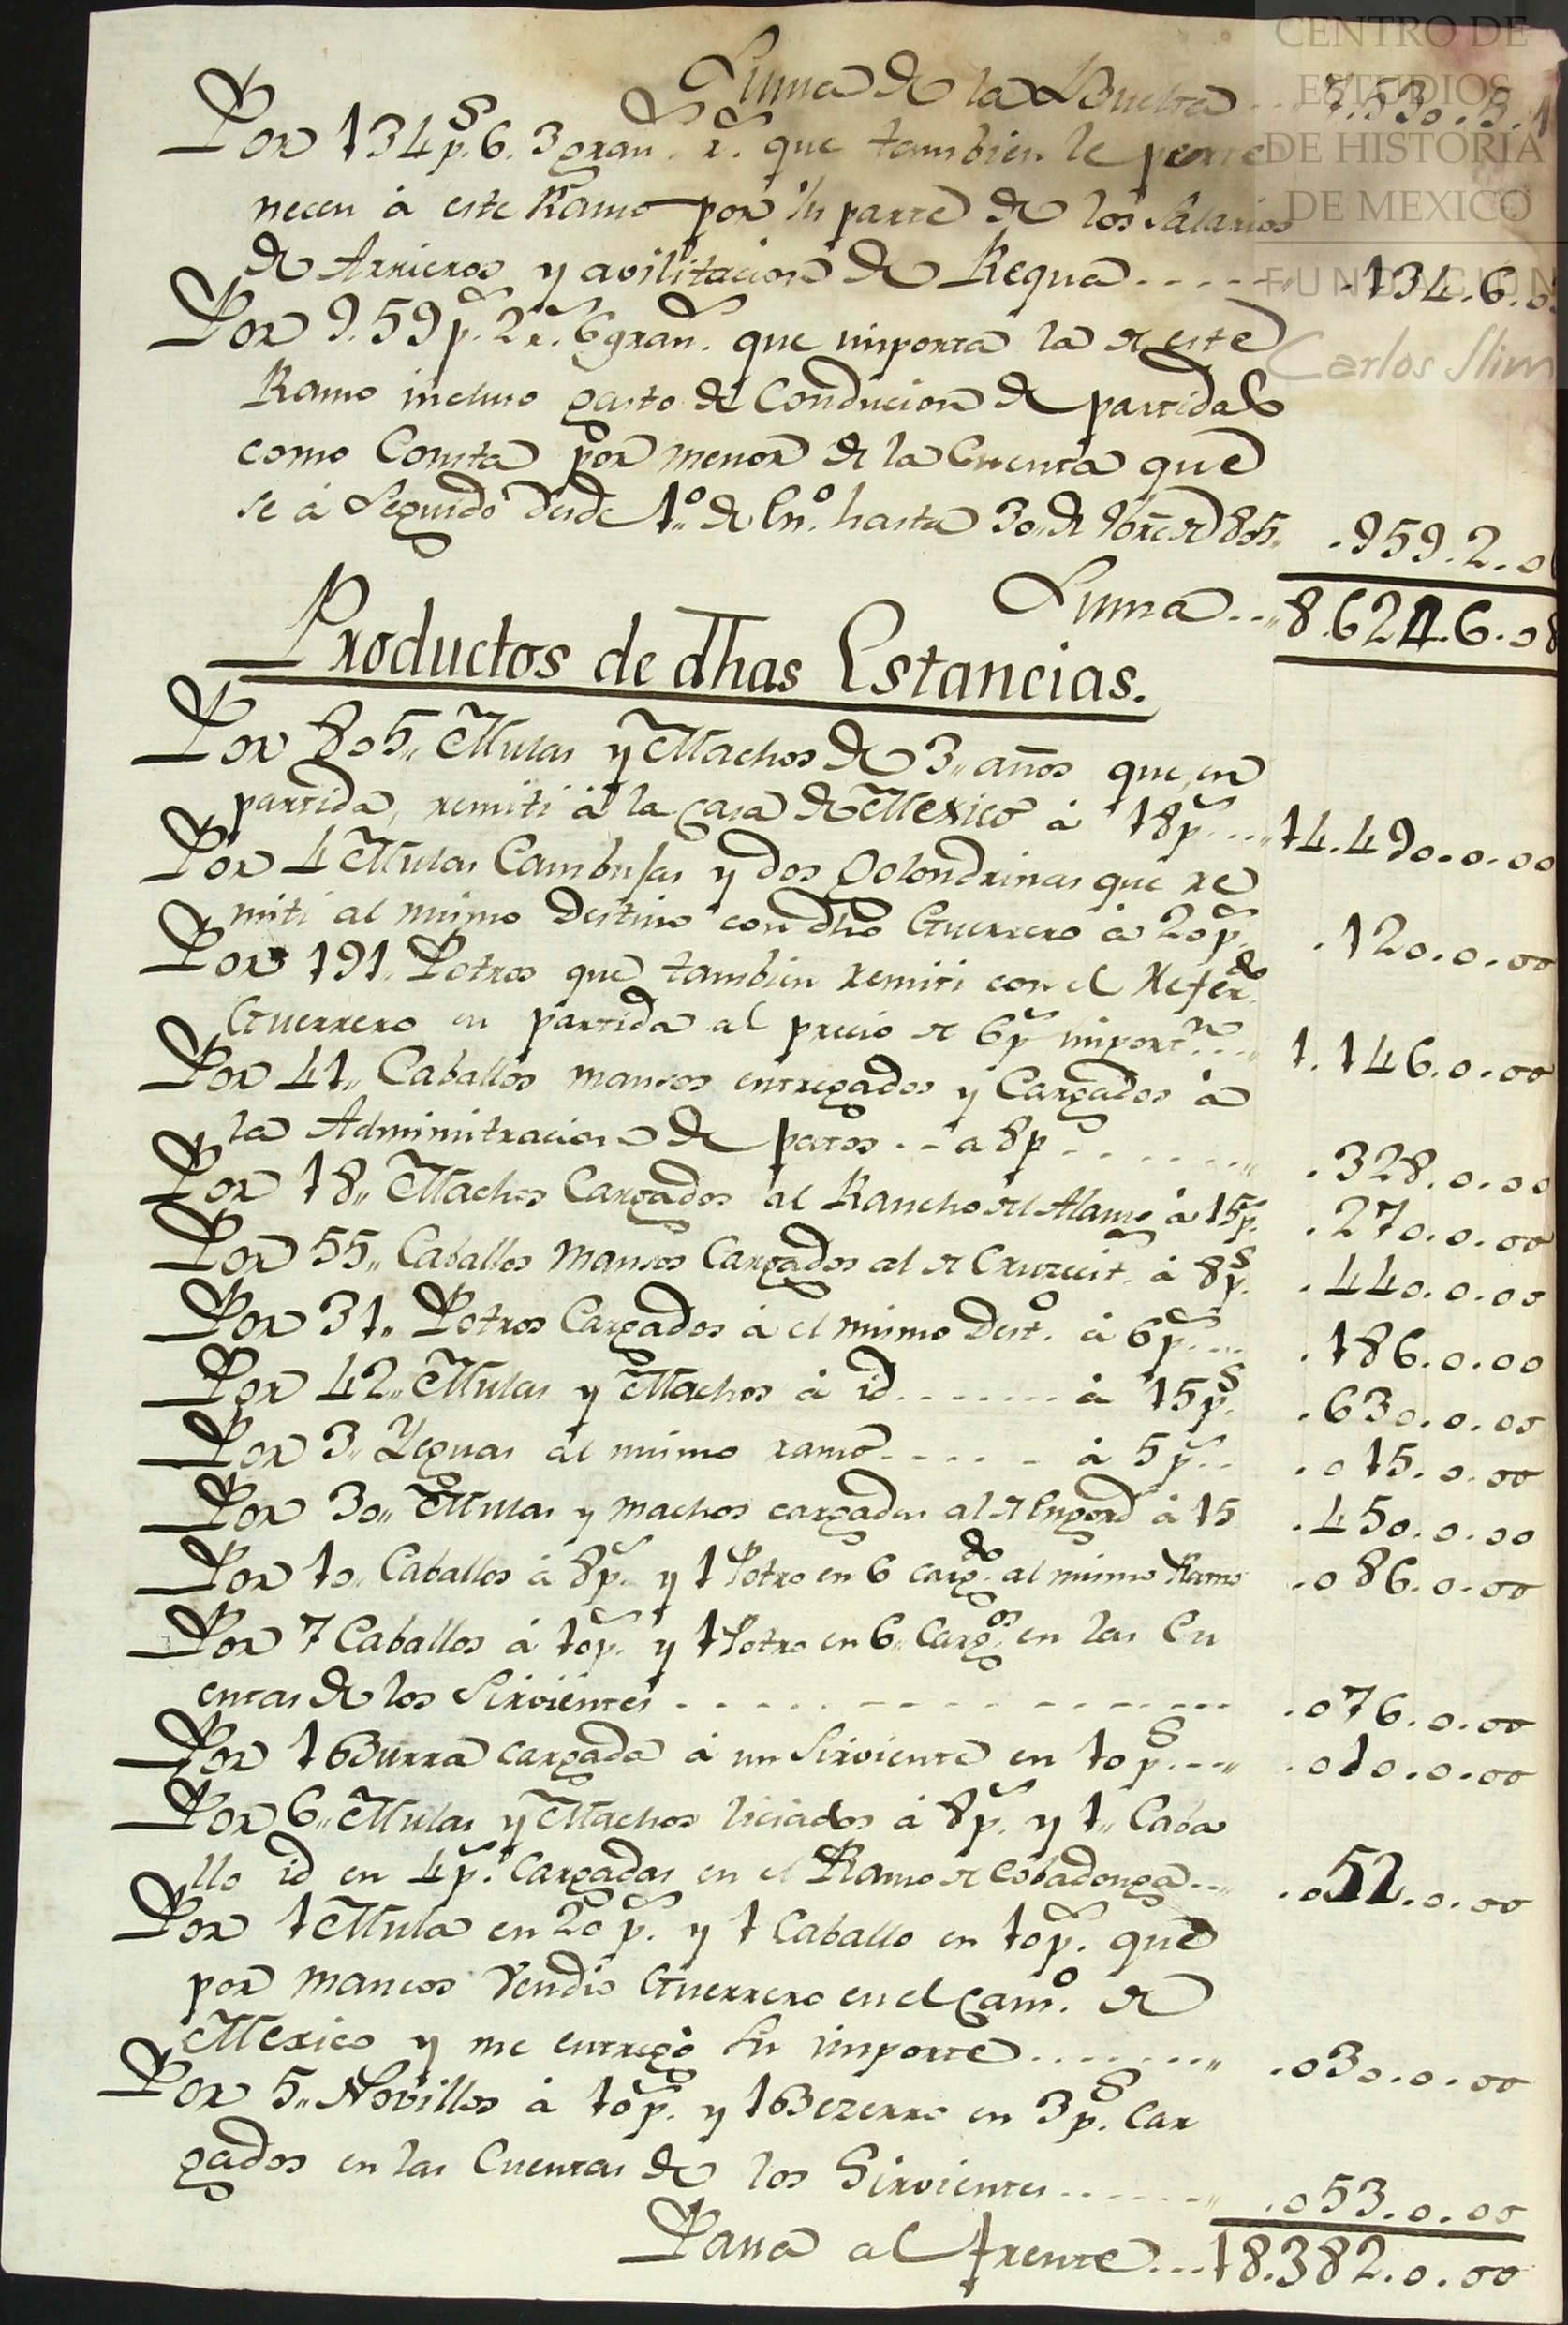 CENTRO DE
ESTUDIOS
DE HISTORIA
DE MEXICO
FUNDACIÓN
Carlos Slim
Suma de la Buelta .. 7.530.5.1
Por 134 p.s 6. 3 gran.s r.s que tambien le perte
necen á este Ramo por su parte de los Salarios
de Arrieros y avilitacion de Requa ...... .134.6.0
Por 9.59 p.s 2 r.s 6 gran.s que importa la de este
Ramo incluso gasto de Conducion de partidas
como Consta por menor de la Cuenta que
se á Seguido desde 1.º de En.º hasta 30 de 9bre de 805,, .959.2.0
Suma ..,, 8.624.6.08
Productos de dhas Estancias.
Por 805,, Mulas y Machos de 3,, años que, en
partida, remiti á la Casa de Mexico á 18 p.s ....,, 14.490.0.00
Por 4 Mulas Cambujas y dos Golondrinas que re
miti al mismo Destino con dho Guerrero á 20 p.s .120.0.00
Por 191,, Potros que tambien remiti con el Refer.do
Guerrero en partida al precio de 6 p.s import.n ...,, 1.146.0.00
Por 41,, Caballos mansos entregados y Cargados á
la Administracion de patos .. a 8 p.s ......,, .328.0.00
Por 18,, Machos Cargados al Rancho del Alamo á 15 p.s .270.0.00
Por 55,, Caballos Mansos Cargados al de Cruzecit.s á 8 p.s .440.0.00
Por 31,, Potros Cargados á el mismo Dest.º á 6 p.s .... .186.0.00
Por 42,, Mulas y Machos á id ........ á 15 p.s .630.0.00
Por 3,, Yeguas al mismo ramo ..... á 5 p.s .. .015.0.00
Por 30,, Mulas y machos cargados al de Engord á 15 .450.0.00
Por 10,, Caballos á 8 p.s y 1 Potro en 6 carg.do al mismo Ramo .086.0.00
Por 7 Caballos á 10 p.s y 1 Potro en 6,, Carg.os en las Cu
entas de los Sirvientes .............. .076.0.00
Por 1 Burra cargada á un Sirviente en 10 p.s ...,, .010.0.00
Por 6,, Mulas y Machos liciados á 8 p.s y 1,, Caba
llo id en 4 p.s Cargadas en el Ramo de Cobadonga ..,, .052.0.00
Por 1 Mula en 20 p.s y 1 Caballo en 10 p.s que
por mancos Vendio Guerrero en el Cam.º de
Mexico y me entregó su importe ........,, .030.0.00
Por 5,, Novillos á 10 p.s y 1 Bezerro en 3 p.s Car
gados en las Cuentas de los Sirvientes ......,, .053.0.00
Passa al frente ... 18.382.0.00